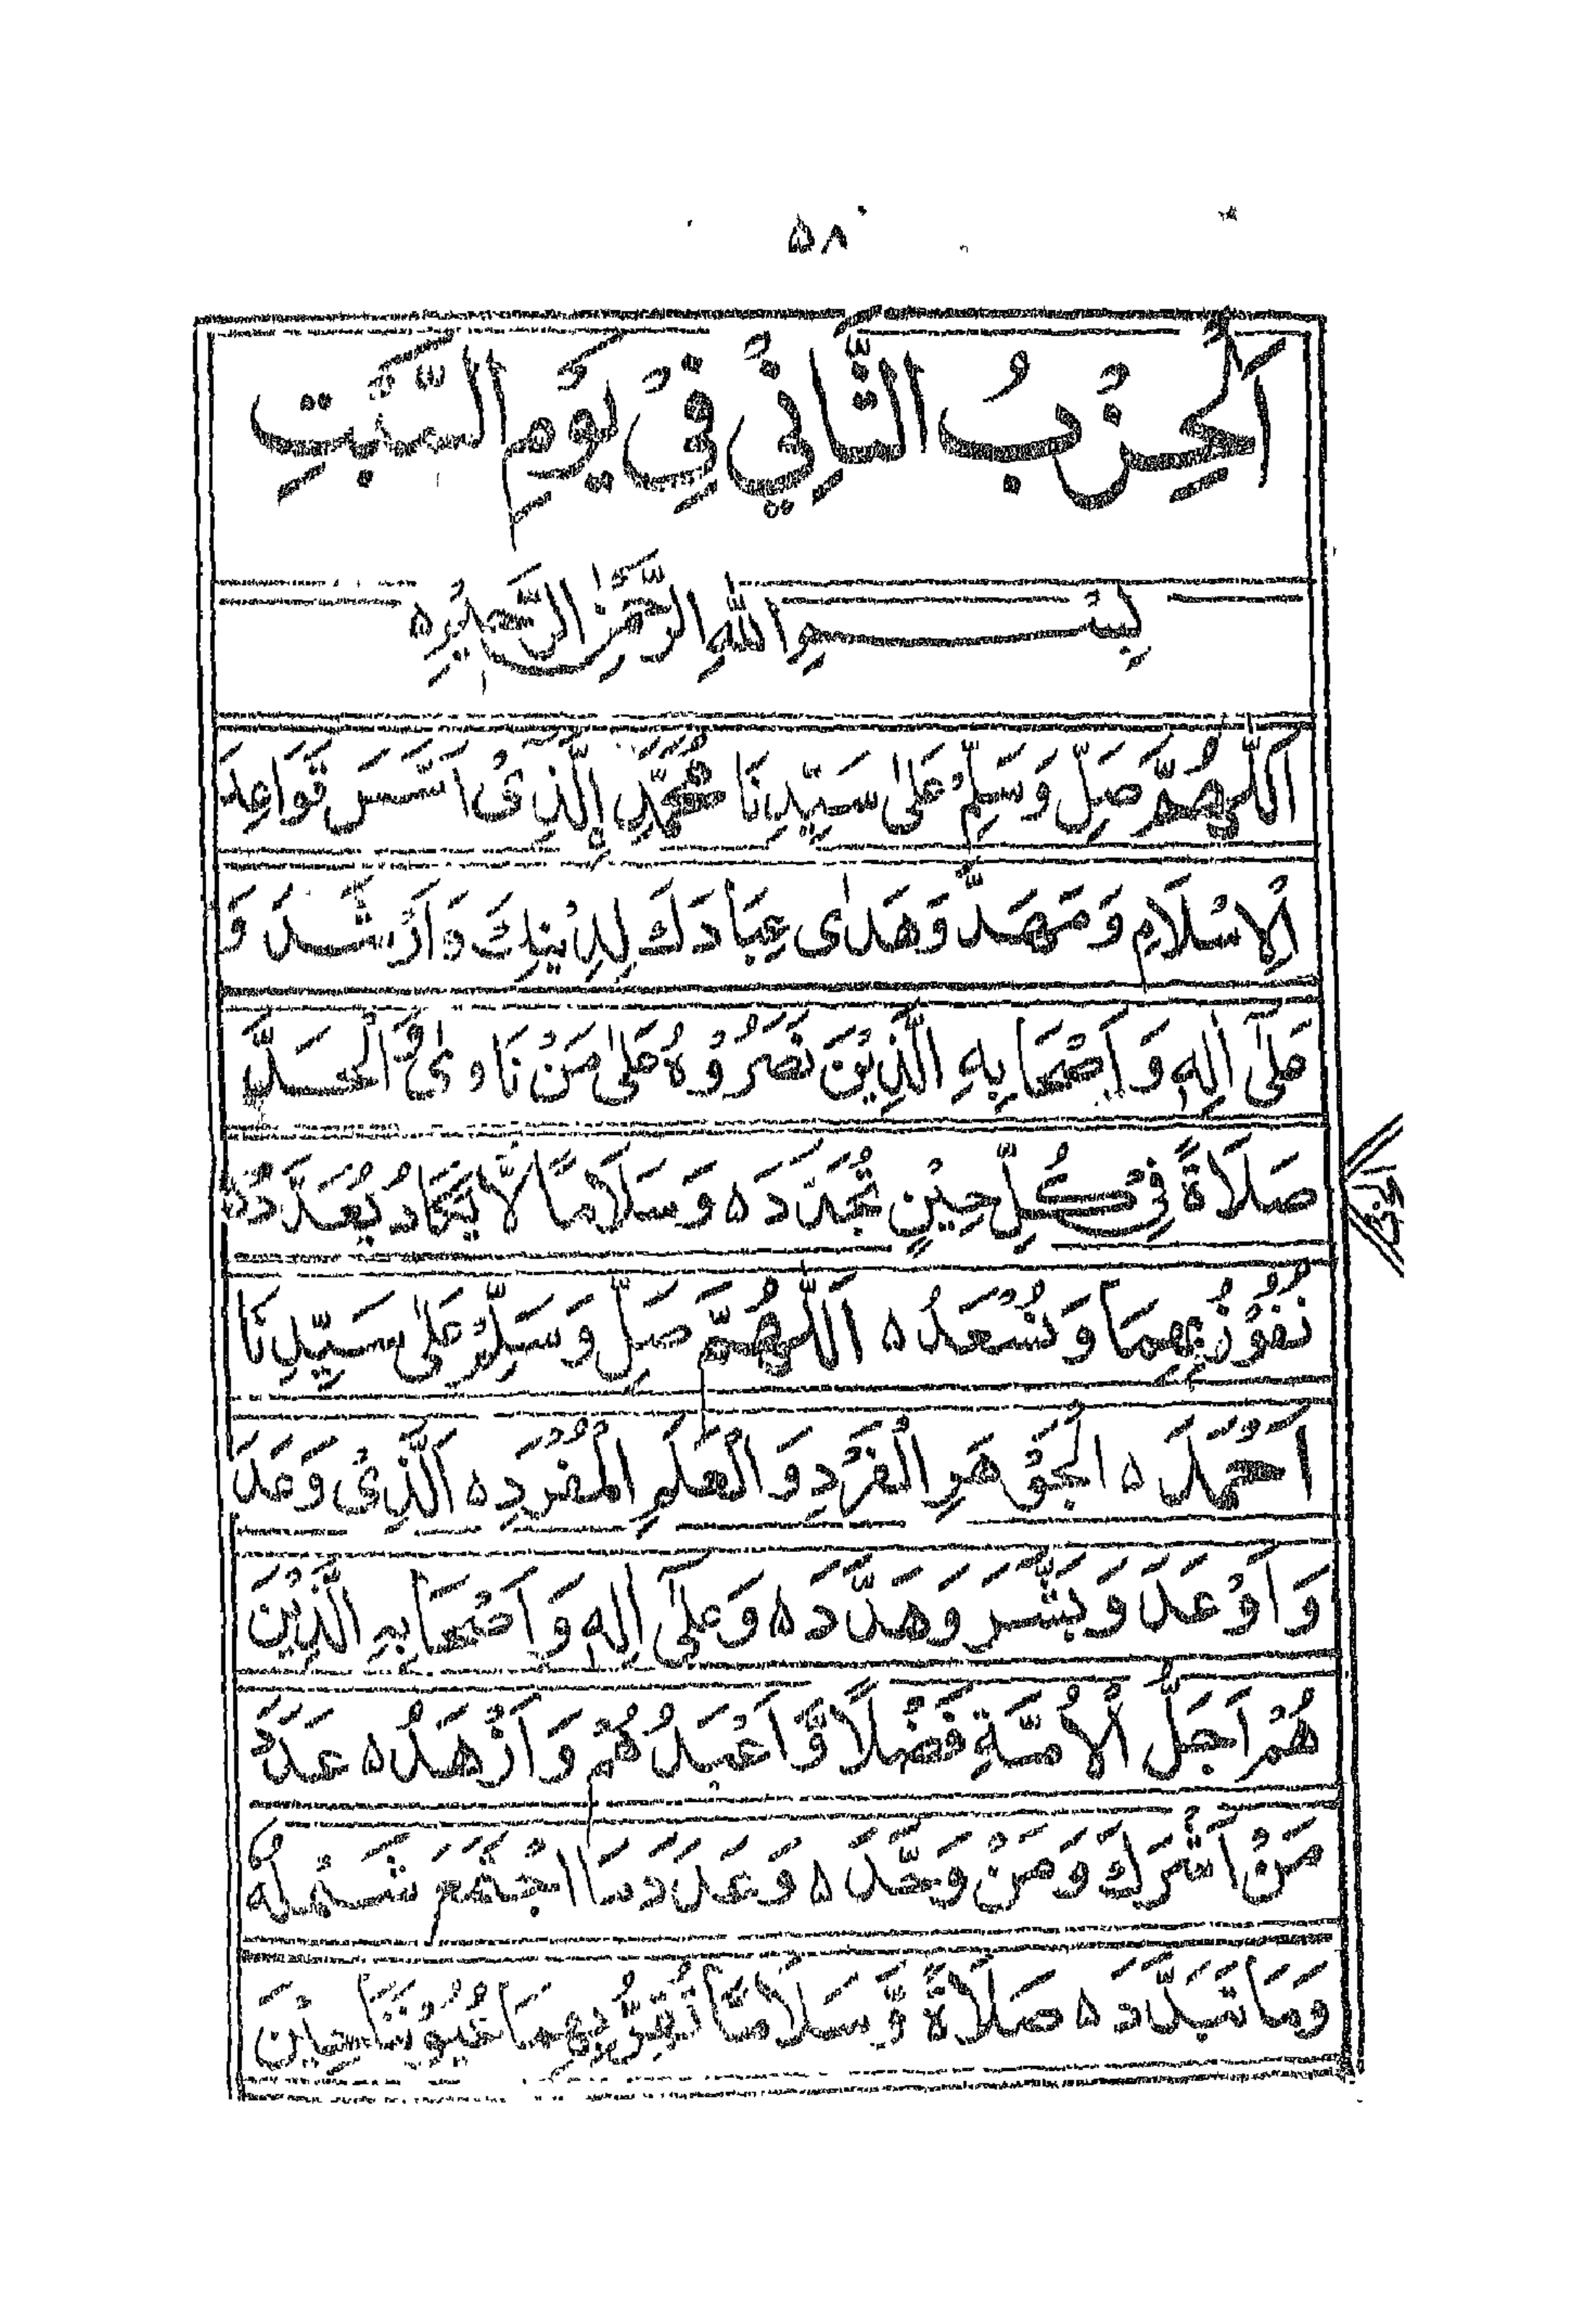 ۵۸
اَلْحِزْبُ الثَّانِيْ فِيْ يَوْمِ السَّبْتِ
بِسْمِ اللهِ الرَّحْمٰنِ الرَّحِيْمِ ه
اَللّٰهُمَّ صَلِّ وَسَلِّمْ عَلٰى سَيِّدِنَا مُحَمَّدِ اِلَّذِىْ اَسَّسَ قَوَاعِدَ
الْاِسْلَامِ وَمَهَّدَ وَهَدٰى عِبَادَكَ لِدِيْنِكَ وَاَرْشَدَ وَ
عَلٰى اٰلِهٖ وَاَصْحَابِهِ الَّذِيْنَ نَصَرُوْهُ عَلٰى مَنْ نَاوٰى الْحَقَّ
صَلَاةً فِىْ كُلِّ حِيْنٍ تُجَدَّدَ ه وَسَلَامًا لَّا يَكَادُ يُعَدَّدُ ه
نَفُوْزُ بِهِمَا وَنُسْعَدُ ه اَللّٰهُمَّ صَلِّ وَسَلِّمْ عَلٰى سَيِّدِنَا
اَحْمَدَ ه الْجَوْهَرِ الْفَرْدِ وَالْعَلَمِ الْمُفْرَدِ ه اَلَّذِىْ وَعَدَ
وَاَوْعَدَ وَبَشَّرَ وَهَدَّدَ ه وَعَلٰٓى اٰلِهٖ وَاَصْحَابِهِ الَّذِيْنَ
هُمْ اَجَلُّ الْاُمَّةِ فَضْلًا وَّاَعْبَدُهُمْ وَاَزْهَدُ ه عَدَدَ
مَنْ اَشْرَكَ وَمَنْ وَحَّدَ ه وَعَدَدَ مَا اجْتَمَعَ شَمْلُهٗ
وَمَا تَبَدَّدَ ه صَلَاةً وَّسَلَامًا تُقِرُّ بِهِمَا عُيُوْنَنَا حِيْنَ